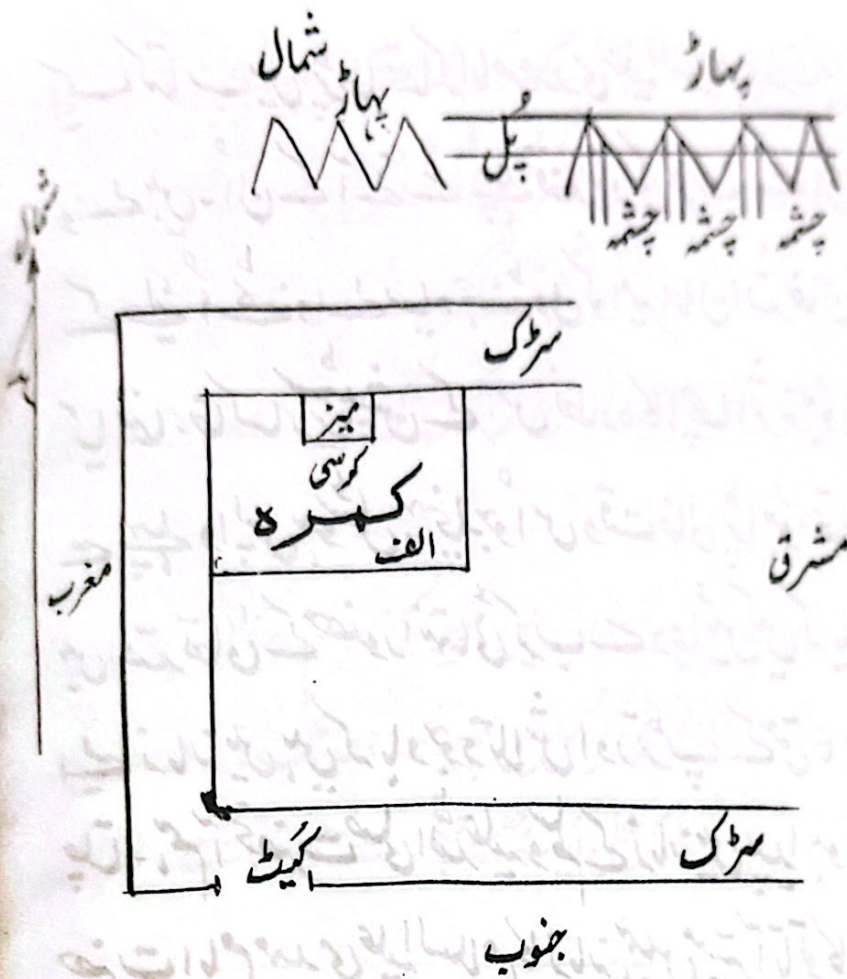 شمال
پہاڑ
پہاڑ
پُل
چشمہ چشمہ چشمہ
شمال
سڑک
میز
کرسی
کمرہ
الف
مغرب
مشرق
سڑک
گیٹ
جنوب